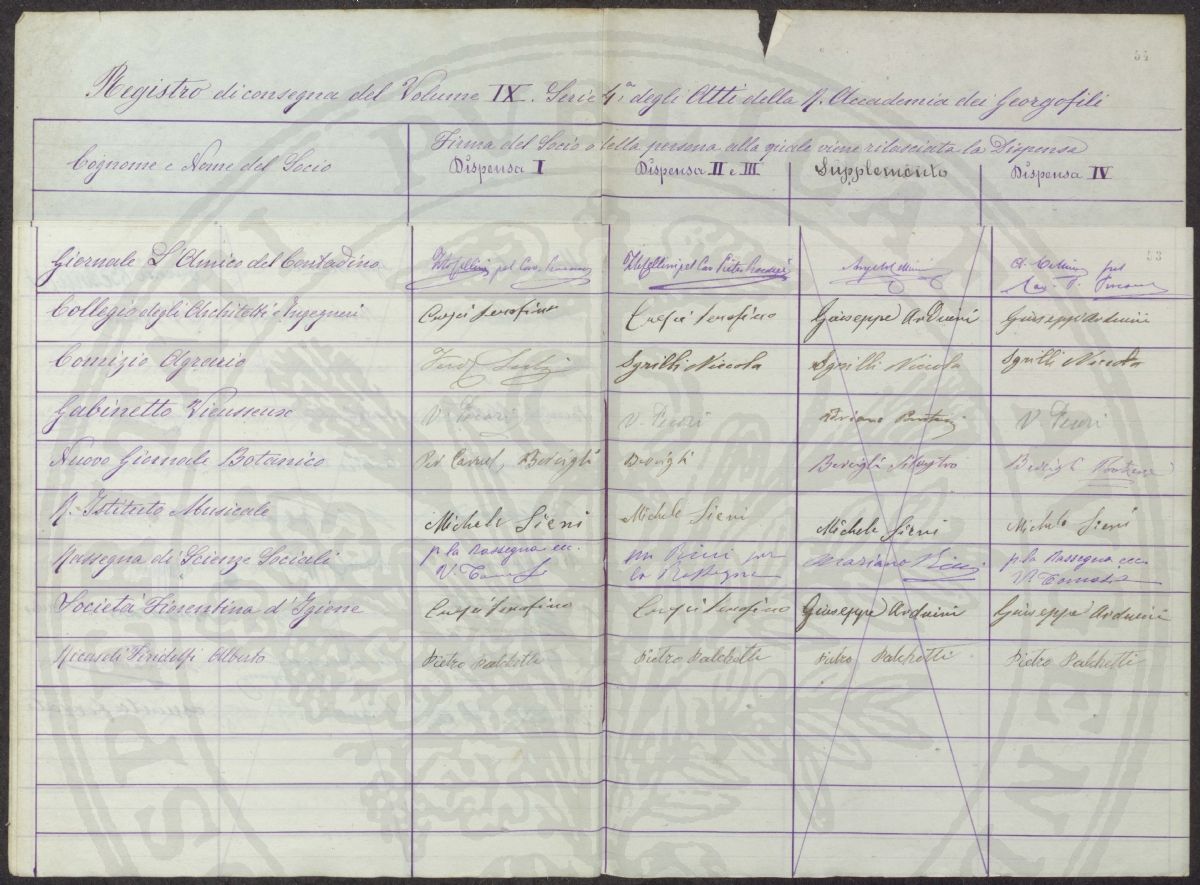 54
Registro di consegna del Volume IX. Serie 4.a degli Atti della R. Accademia dei Georgofili
Cognome e Nome del Socio
Firma del Socio o della persona alla quale viene rilasciata la Dispensa
Dispensa I Dispensa II e III Supplemento Dispensa IV
53
Giornale L'Amico del Contadino pel Cav. pel Cav. Pietro pel
Collegio degli Architetti e Ingegneri Crespi Serafino Crespi Serafino Giuseppe Arduini Giuseppe Arduini
Comizio Agrario Sgrilli Niccola Sgrilli Niccola Sgrilli Niccola
Gabinetto Vieusseux V. Pecori V. Pecori Adriano V. Pecori
Nuovo Giornale Botanico Per Caruel, Bercigli Bercigli Bercigli Silvestro Bercigli
R. Istituto Musicale Michele Sieni Michele Sieni Michele Sieni Michele Sieni
Rassegna di Scienze Sociali p. la Rassegna ecc. per p. la Rassegna ecc.
la Rassegna Mariano
Società Fiorentina d'Igiene Crespi Serafino Crespi Serafino Giuseppe Arduini Giuseppe Arduini
Ricasoli Firidolfi Alberto Pietro Palchetti Pietro Palchetti Pietro Palchetti Pietro Palchetti